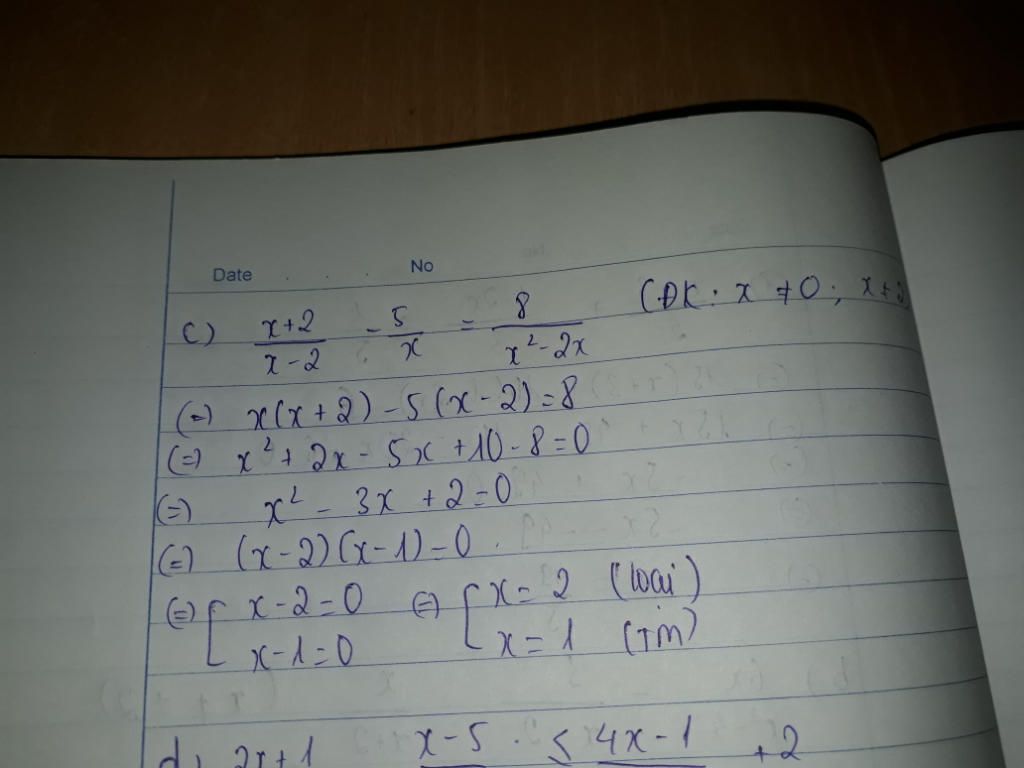 Date . . . No
c) (x+2)/(x-2) - 5/x = 8/(x² - 2x) (ĐK: x ≠ 0; x ≠
(=) x(x+2) - 5(x-2) = 8
(=) x² + 2x - 5x + 10 - 8 = 0
(=) x² - 3x + 2 = 0
(=) (x-2)(x-1) = 0.
(=) [ x-2=0 (=) [ x = 2 (loại)
x-1=0 x = 1 (TM)
d) 2x+1 x-5 ≤ 4x-1 +2